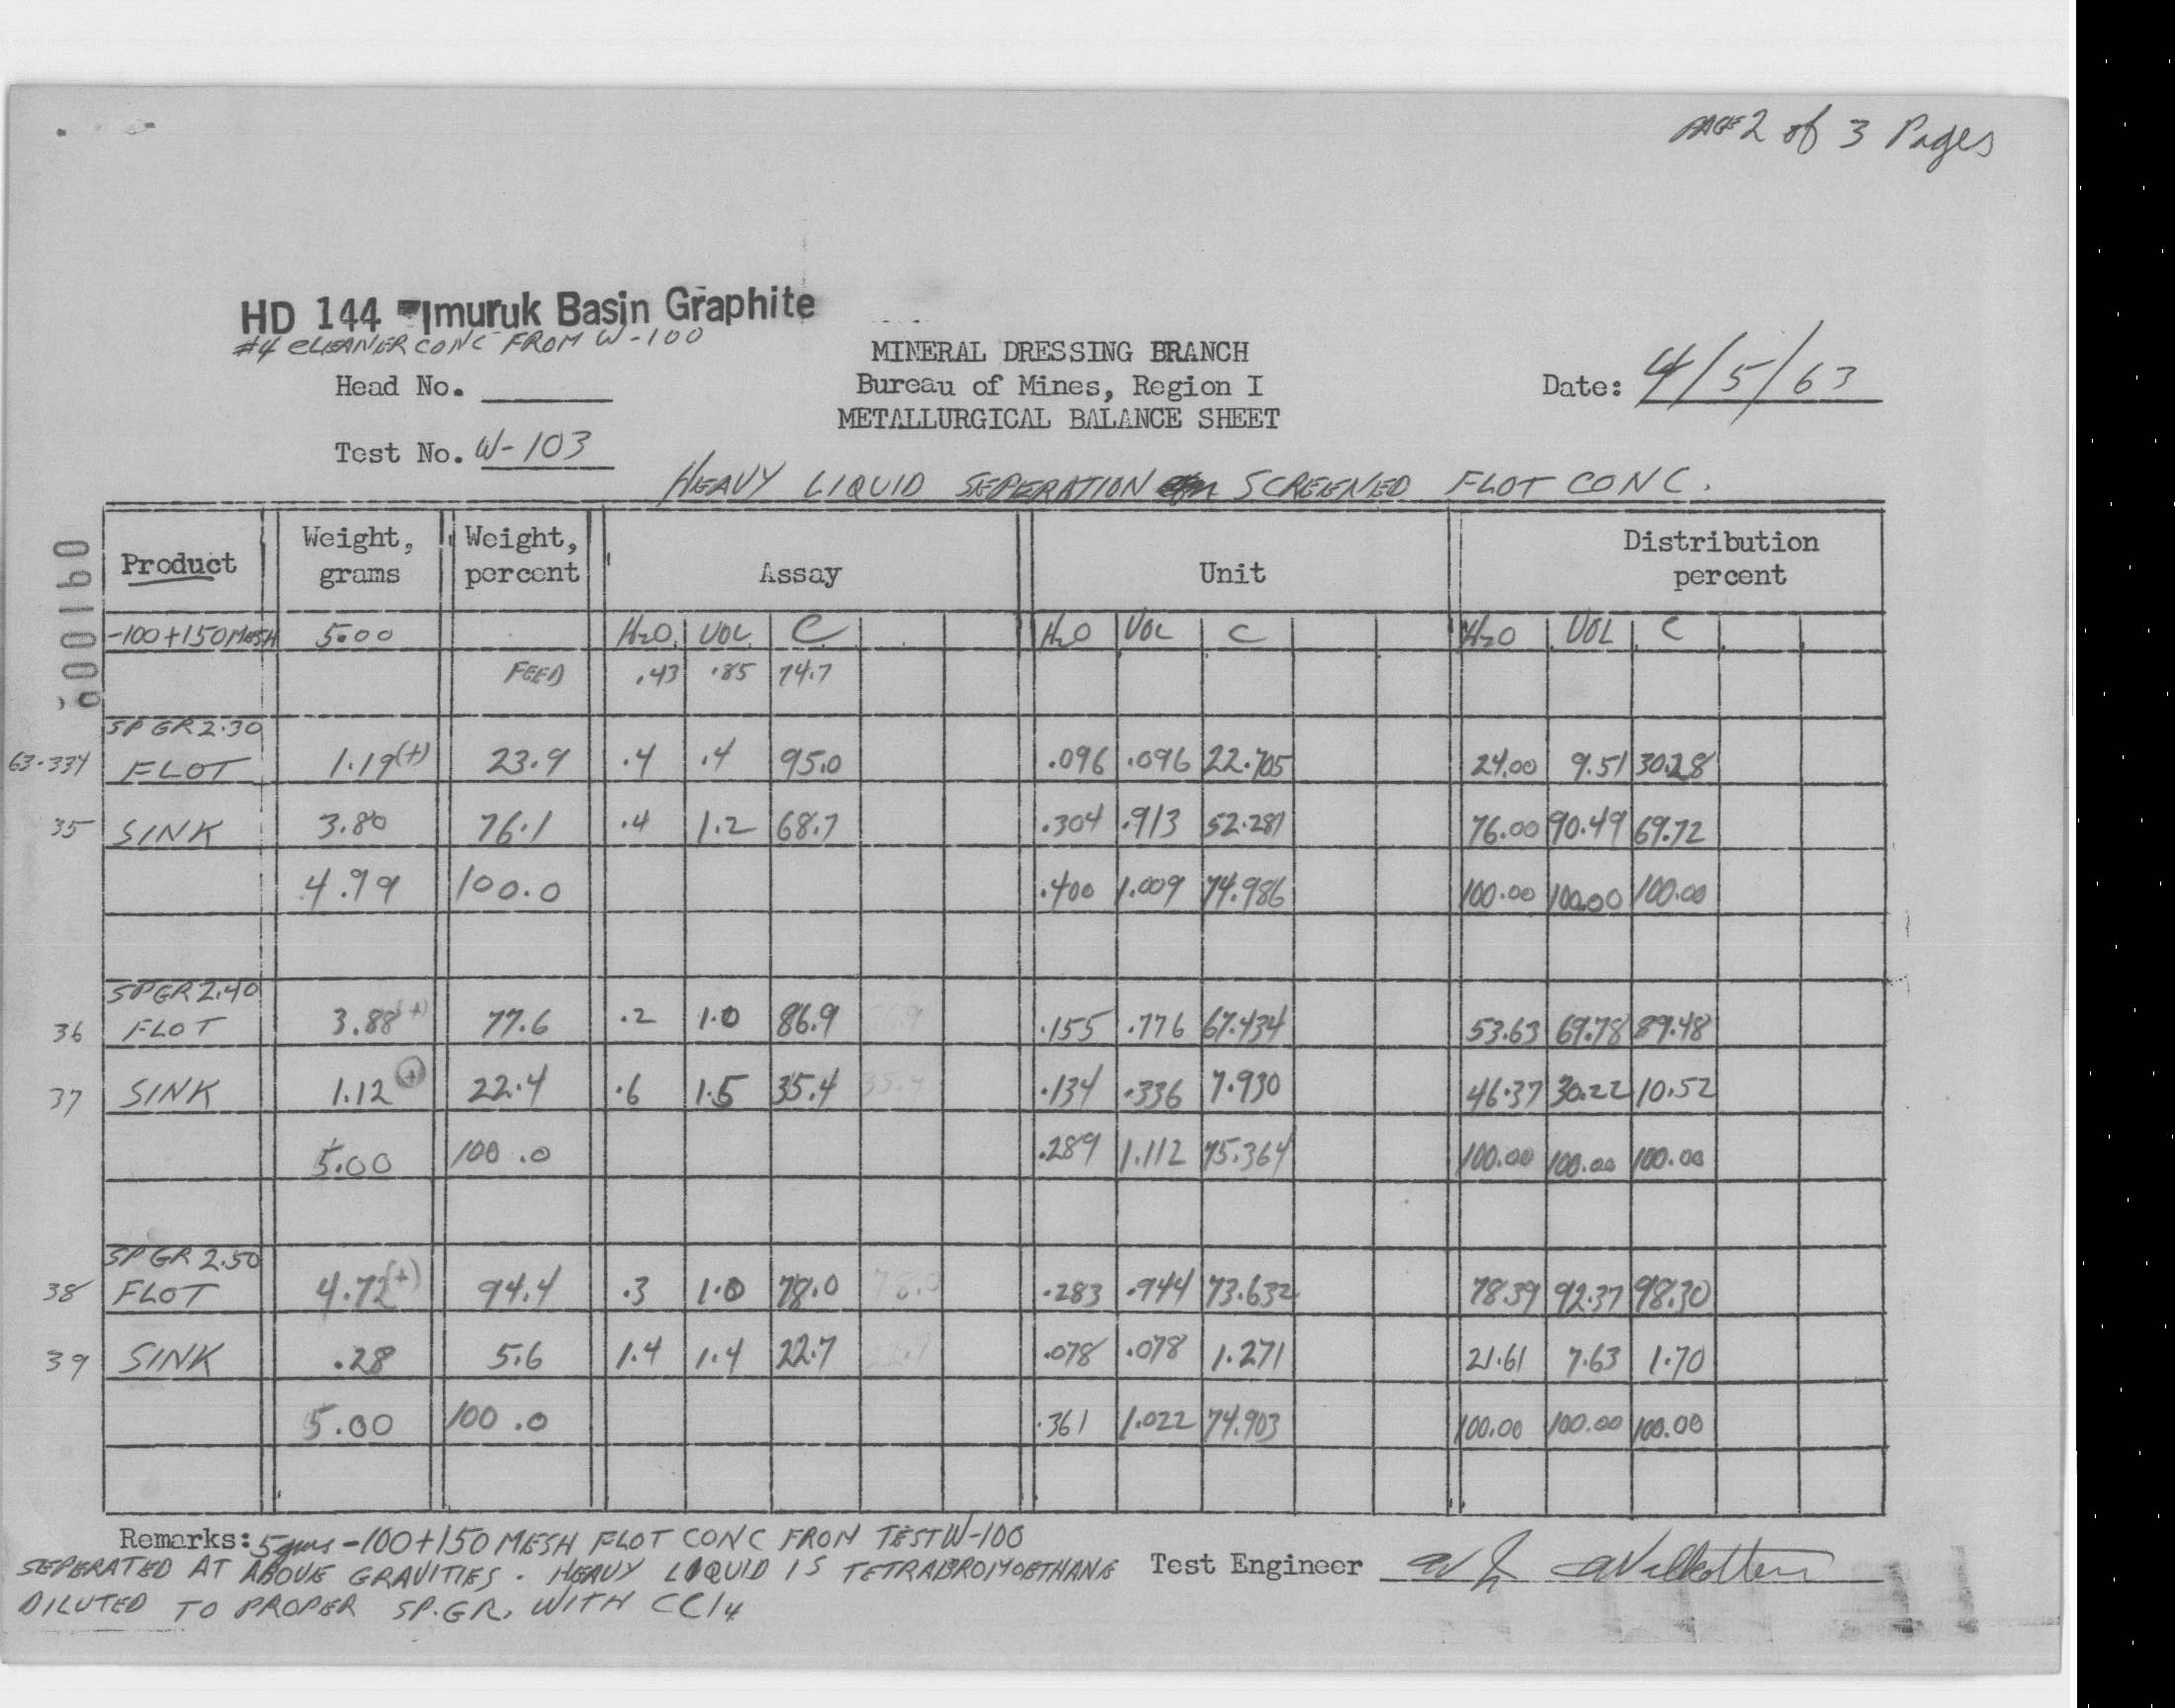 PAGE 2 of 3 Pages
HD 144 - Imuruk Basin Graphite
#4 CLEANER CONC FROM W-100
MINERAL DRESSING BRANCH
Head No.
Bureau of Mines, Region I
Date: 4/5/63
METALLURGICAL BALANCE SHEET
Test No. W-103
HEAVY LIQUID SEPERATION SCREENED FLOT CONC.
Product Weight, grams Weight, percent Assay Unit Distribution percent
-100+150 MESH 5.00 H2O VOL C H2O VOL C H2O VOL C
FEED .43 .85 74.7
SP GR 2.30
63-334 FLOT 1.19(+) 23.9 .4 .4 95.0 .096 .096 22.705 24.00 9.51 30.28
35 SINK 3.80 76.1 .4 1.2 68.7 .304 .913 52.281 76.00 90.49 69.72
4.99 100.0 .400 1.009 74.986 100.00 100.00 100.00
SP GR 2.40
36 FLOT 3.88(+) 77.6 .2 1.0 86.9 .155 .776 67.434 53.63 69.78 89.48
37 SINK 1.12(+) 22.4 .6 1.5 35.4 35.4 .134 .336 7.930 46.37 30.22 10.52
5.00 100.0 .289 1.112 75.364 100.00 100.00 100.00
SP GR 2.50
38 FLOT 4.72(+) 94.4 .3 1.0 78.0 78.0 .283 .944 73.632 78.39 92.37 98.30
39 SINK .28 5.6 1.4 1.4 22.7 .078 .078 1.271 21.61 7.63 1.70
5.00 100.0 .361 1.022 74.903 100.00 100.00 100.00
Remarks: 5 gms -100+150 MESH FLOT CONC FROM TEST W-100
SEPERATED AT ABOVE GRAVITIES. HEAVY LIQUID IS TETRABROMOETHANE Test Engineer
DILUTED TO PROPER SP.GR. WITH CCl4